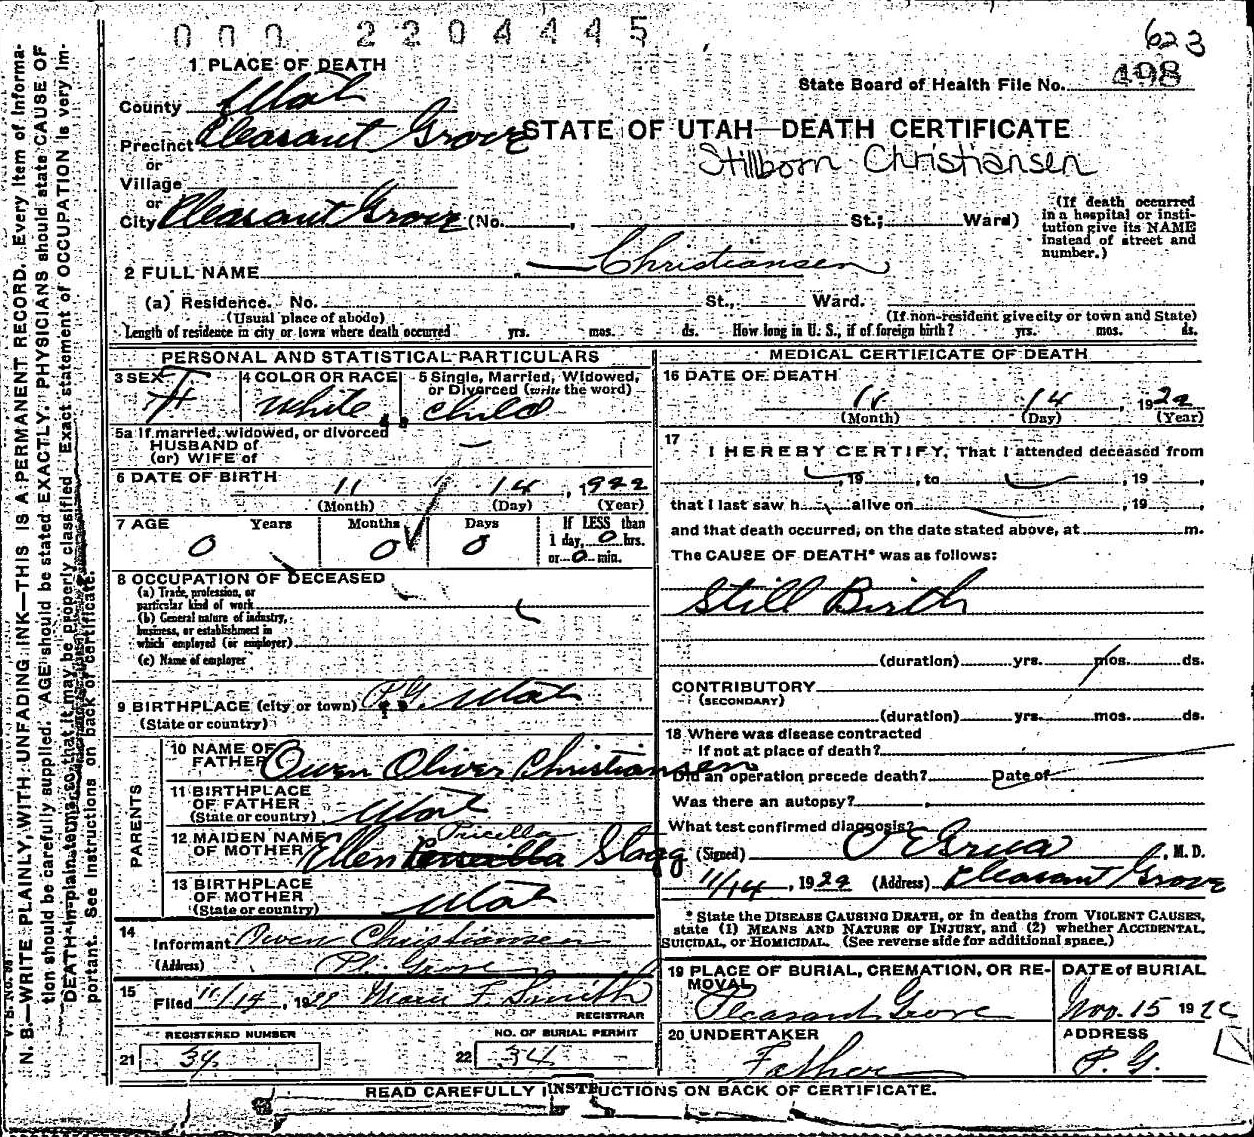 000 2204445
623
State Board of Health File No. 498
1 PLACE OF DEATH
County Utah
Precinct Pleasant Grove
STATE OF UTAH—DEATH CERTIFICATE
Stillborn Christiansen
or
Village
or
City Pleasant Grove (No. , St.; Ward)
(If death occurred in a hospital or institution give its NAME instead of street and number.)
2 FULL NAME — Christiansen
(a) Residence. No. St., Ward.
(Usual place of abode) (If non-resident give city or town and State)
Length of residence in city or town where death occurred yrs. mos. ds. How long in U. S., if of foreign birth? yrs. mos. ds.
PERSONAL AND STATISTICAL PARTICULARS
3 SEX F
4 COLOR OR RACE White
5 Single, Married, Widowed, or Divorced (write the word) child
5a If married, widowed, or divorced
HUSBAND of
(or) WIFE of —
6 DATE OF BIRTH 11 14, 1922
(Month) (Day) (Year)
7 AGE Years Months Days If LESS than
0 0 0 1 day, 0 hrs.
or 0 min.
8 OCCUPATION OF DECEASED
(a) Trade, profession, or
particular kind of work
(b) General nature of industry,
business, or establishment in
which employed (or employer)
(c) Name of employer
9 BIRTHPLACE (city or town) P.G. Utah
(State or country)
PARENTS
10 NAME OF FATHER Owen Oliver Christiansen
11 BIRTHPLACE OF FATHER
(State or country) Utah
12 MAIDEN NAME OF MOTHER Ellen Pricilla Slagg
13 BIRTHPLACE OF MOTHER
(State or country) Utah
14
Informant Owen Christiansen
(Address) Pl. Grove
15
Filed 11/14, 1922 F Smith
REGISTRAR
REGISTERED NUMBER
21 34
NO. OF BURIAL PERMIT
22 34
MEDICAL CERTIFICATE OF DEATH
16 DATE OF DEATH
11 14, 1922
(Month) (Day) (Year)
17
I HEREBY CERTIFY, That I attended deceased from
, 19 , to , 19 ,
that I last saw h alive on , 19 ,
and that death occurred, on the date stated above, at m.
The CAUSE OF DEATH* was as follows:
Still Birth
(duration) yrs. mos. ds.
CONTRIBUTORY
(SECONDARY)
(duration) yrs. mos. ds.
18 Where was disease contracted
If not at place of death?
Did an operation precede death? Date of
Was there an autopsy?
What test confirmed diagnosis?
(Signed) Grua, M. D.
11/14, 1922 (Address) Pleasant Grove
* State the DISEASE CAUSING DEATH, or in deaths from VIOLENT CAUSES,
state (1) MEANS AND NATURE OF INJURY, and (2) whether ACCIDENTAL,
SUICIDAL, or HOMICIDAL. (See reverse side for additional space.)
19 PLACE OF BURIAL, CREMATION, OR REMOVAL
Pleasant Grove
DATE of BURIAL
Nov. 15 1922
20 UNDERTAKER
Father
ADDRESS
P. G.
READ CAREFULLY INSTRUCTIONS ON BACK OF CERTIFICATE.
N. B.—WRITE PLAINLY, WITH UNFADING INK—THIS IS A PERMANENT RECORD. Every item of information should be carefully supplied. AGE should be stated EXACTLY. PHYSICIANS should state CAUSE OF DEATH in plain terms, so that it may be properly classified. Exact statement of OCCUPATION is very important. See instructions on back of certificate.